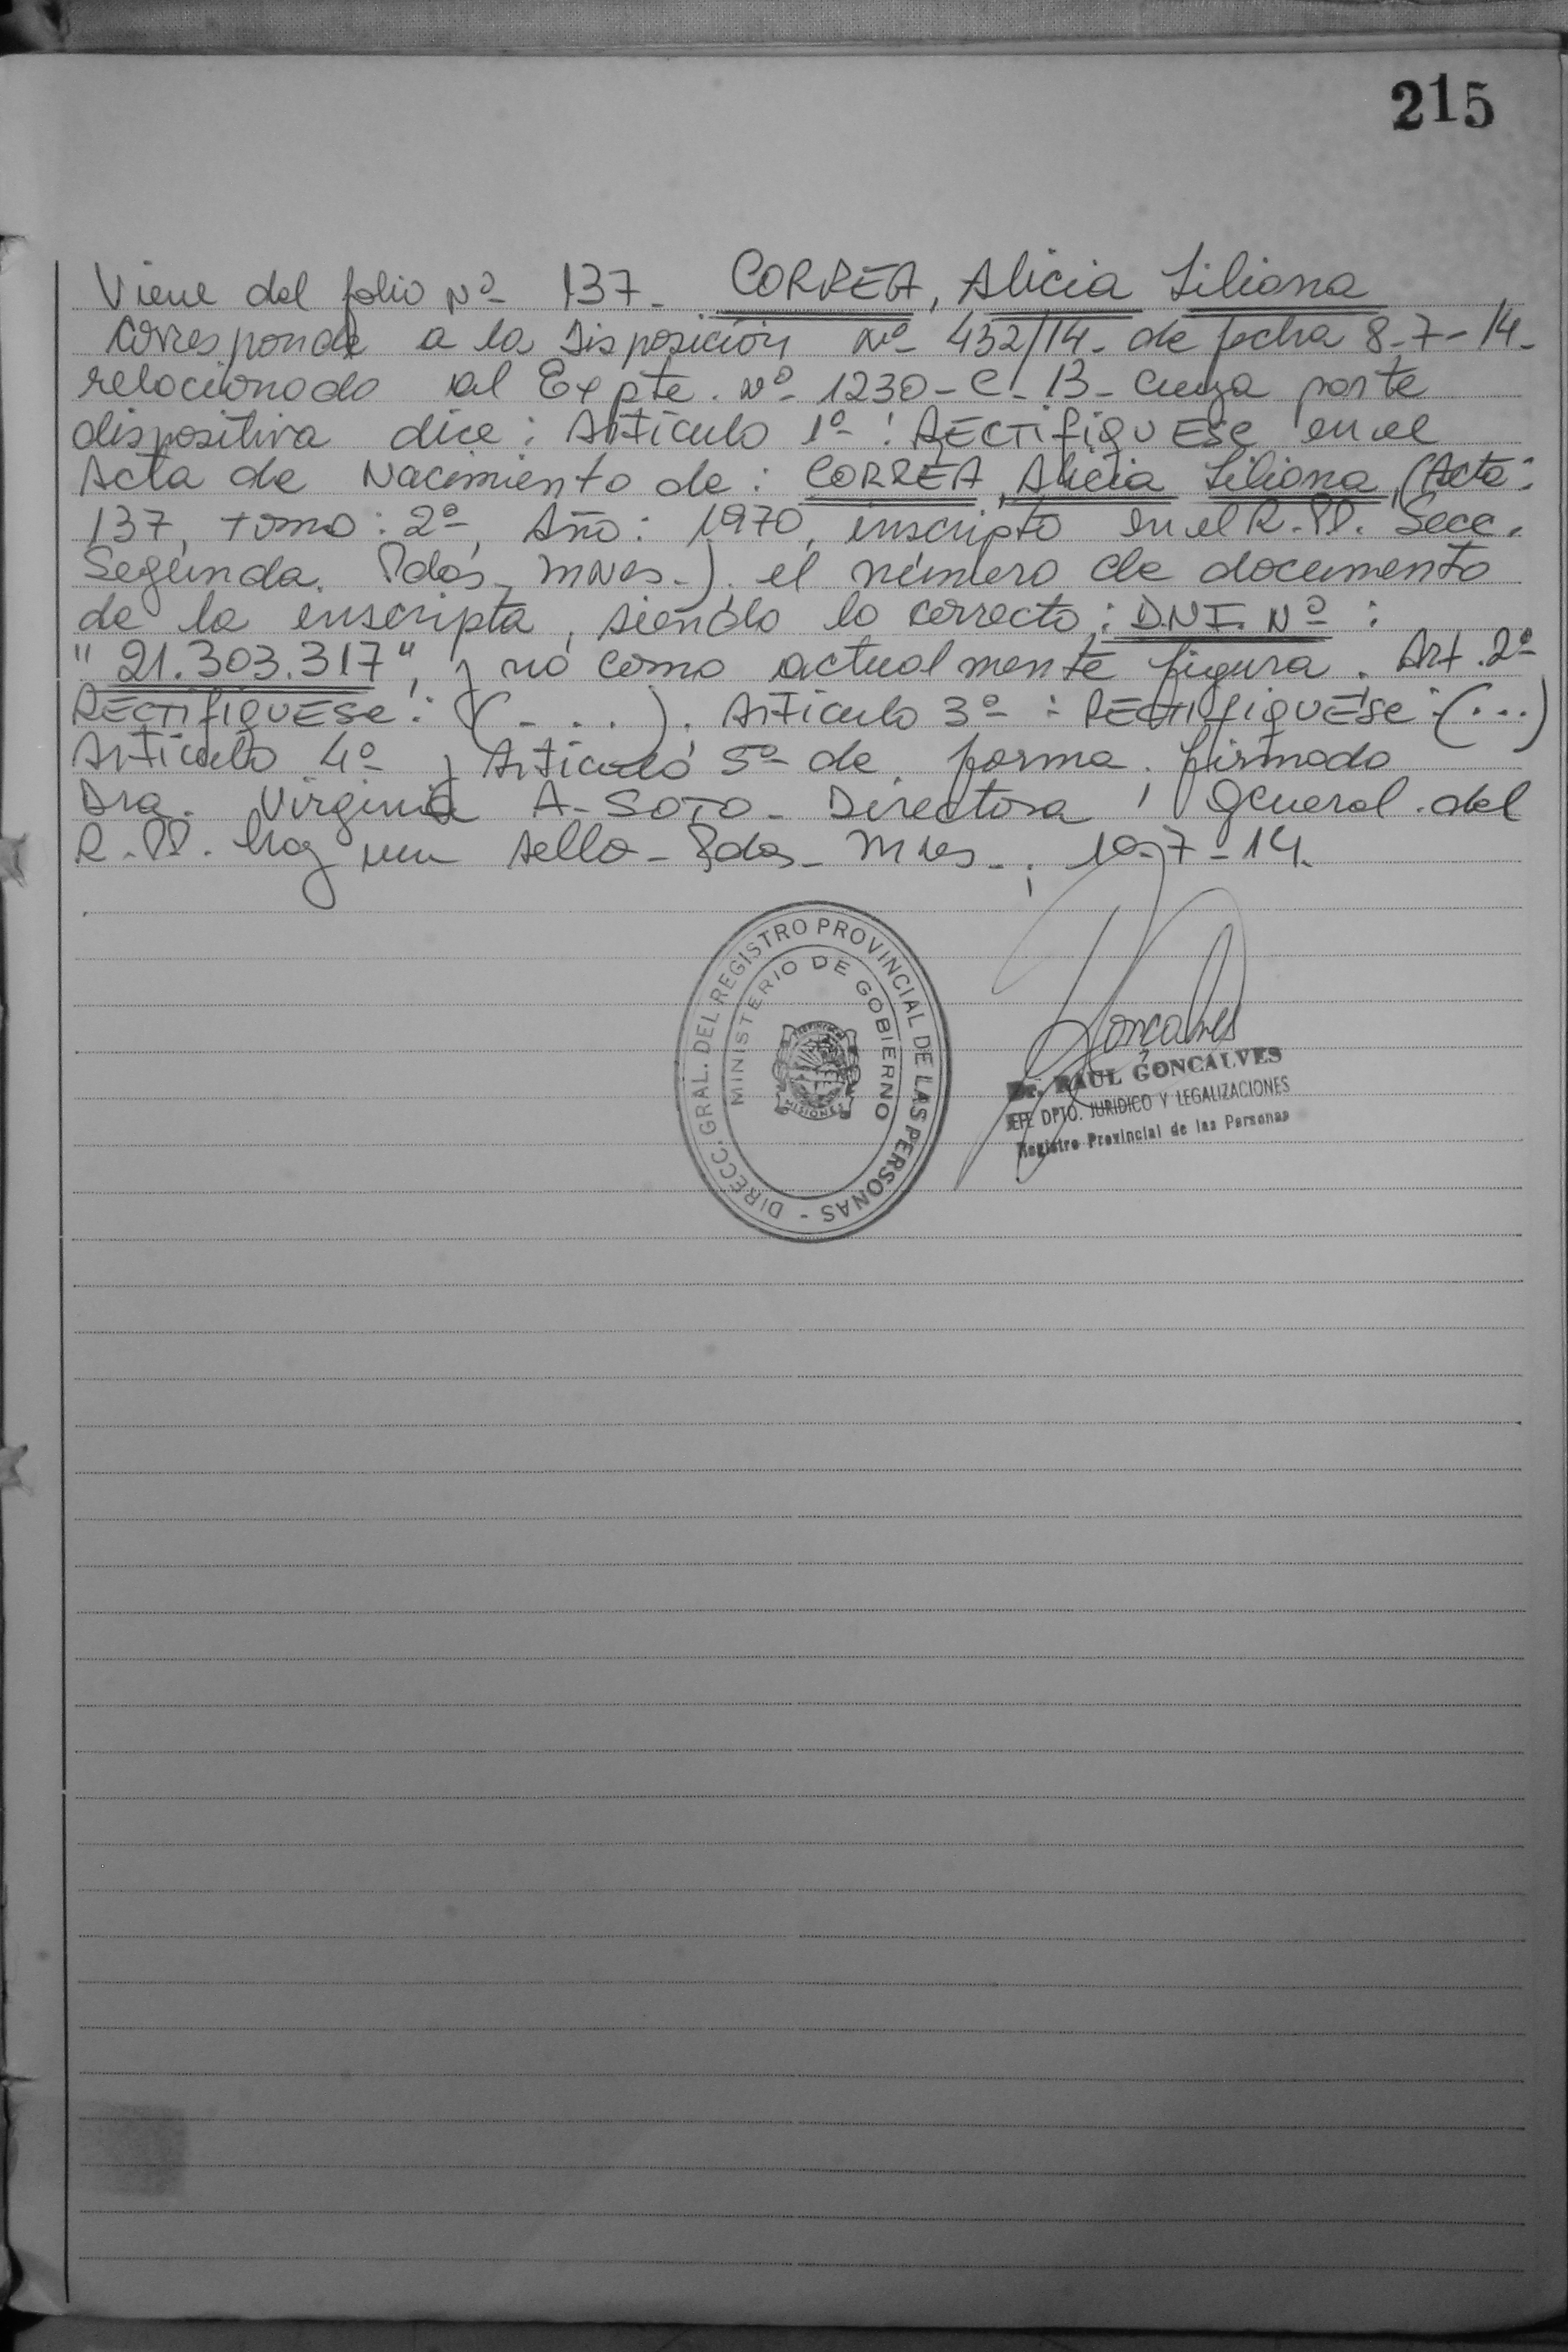 215
Viene del folio Nº 137- CORREA, Alicia Liliana
Corresponde a la Disposición Nº 432/14- de fecha 8-7-14-
relacionado al Expte. Nº 1230-C-13- cuya parte
dispositiva dice: Artículo 1º: RECTIFIQUESE en el
Acta de Nacimiento de: CORREA, Alicia Liliana, (Acta:
137, tomo: 2º, Año: 1970, inscripto en el R.PP. Secc.
Segunda. Pdas, mnes.). el número de documento
de la inscripta, siendo lo correcto: D.N.I. Nº:
"21.303.317", y no como actualmente figura. Art. 2º
RECTIFIQUESE: (...). Artículo 3º: RECTIFIQUESE: (...)
Artículo 4º y Artículo 5º de forma. firmado
Dra. Virginia A- SOTO- Directora General del
R.PP. hay un sello- Pdas- Mnes-; 10-7-14.
DIRECC. GRAL. DEL REGISTRO PROVINCIAL DE LAS PERSONAS -
MINISTERIO DE GOBIERNO
MISIONES
Goncalves
Dr. RAUL GONCALVES
JEFE DPTO. JURIDICO Y LEGALIZACIONES
Registro Provincial de las Personas